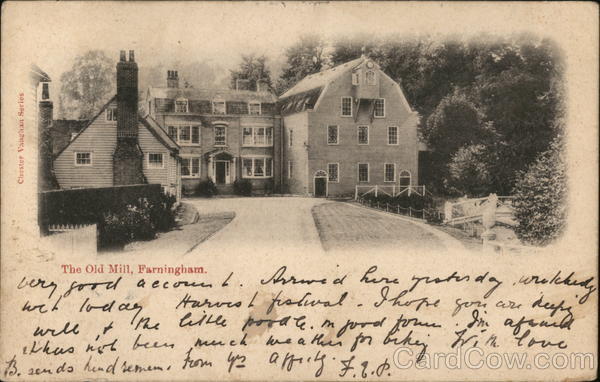 Chester Vaughan Series
The Old Mill, Farningham.
very good account. Arrived here yesterday, wretchedly
wet today Harvest festival. I hope you are keeping
well & the little poodle in good form. I'm afraid
it has not been much weather for biking With love
B. sends kind remem. from yr affectly. F.E.P.
CardCow.com